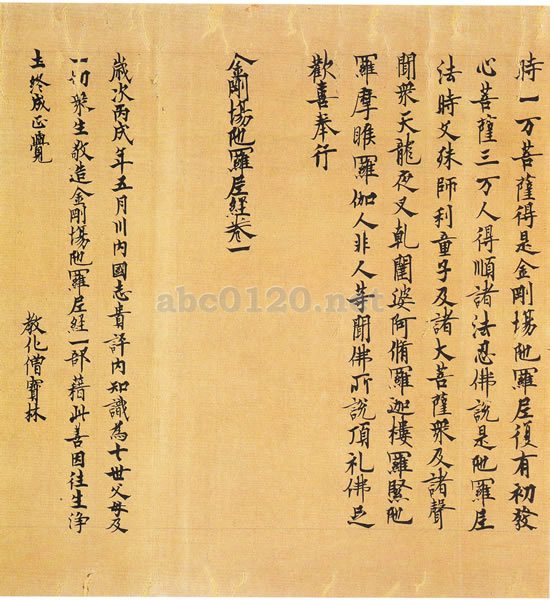 時一万菩薩得是金剛場陁羅尼復有初發
心菩薩三万人得順諸法忍佛說是陁羅尼
法時文殊師利童子及諸大菩薩衆及諸聲
聞衆天龍夜叉乹闥婆阿脩羅迦樓羅緊陁
羅摩睺羅伽人非人等聞佛所說頂礼佛足
歡喜奉行
金剛場陁羅尼経卷一
歲次丙戌年五月川內國志貴評內知識為七世父母及
一切衆生敬造金剛場陁羅尼経一部藉此善因往生浄
土終成正覺
教化僧寶林
abc0120.net